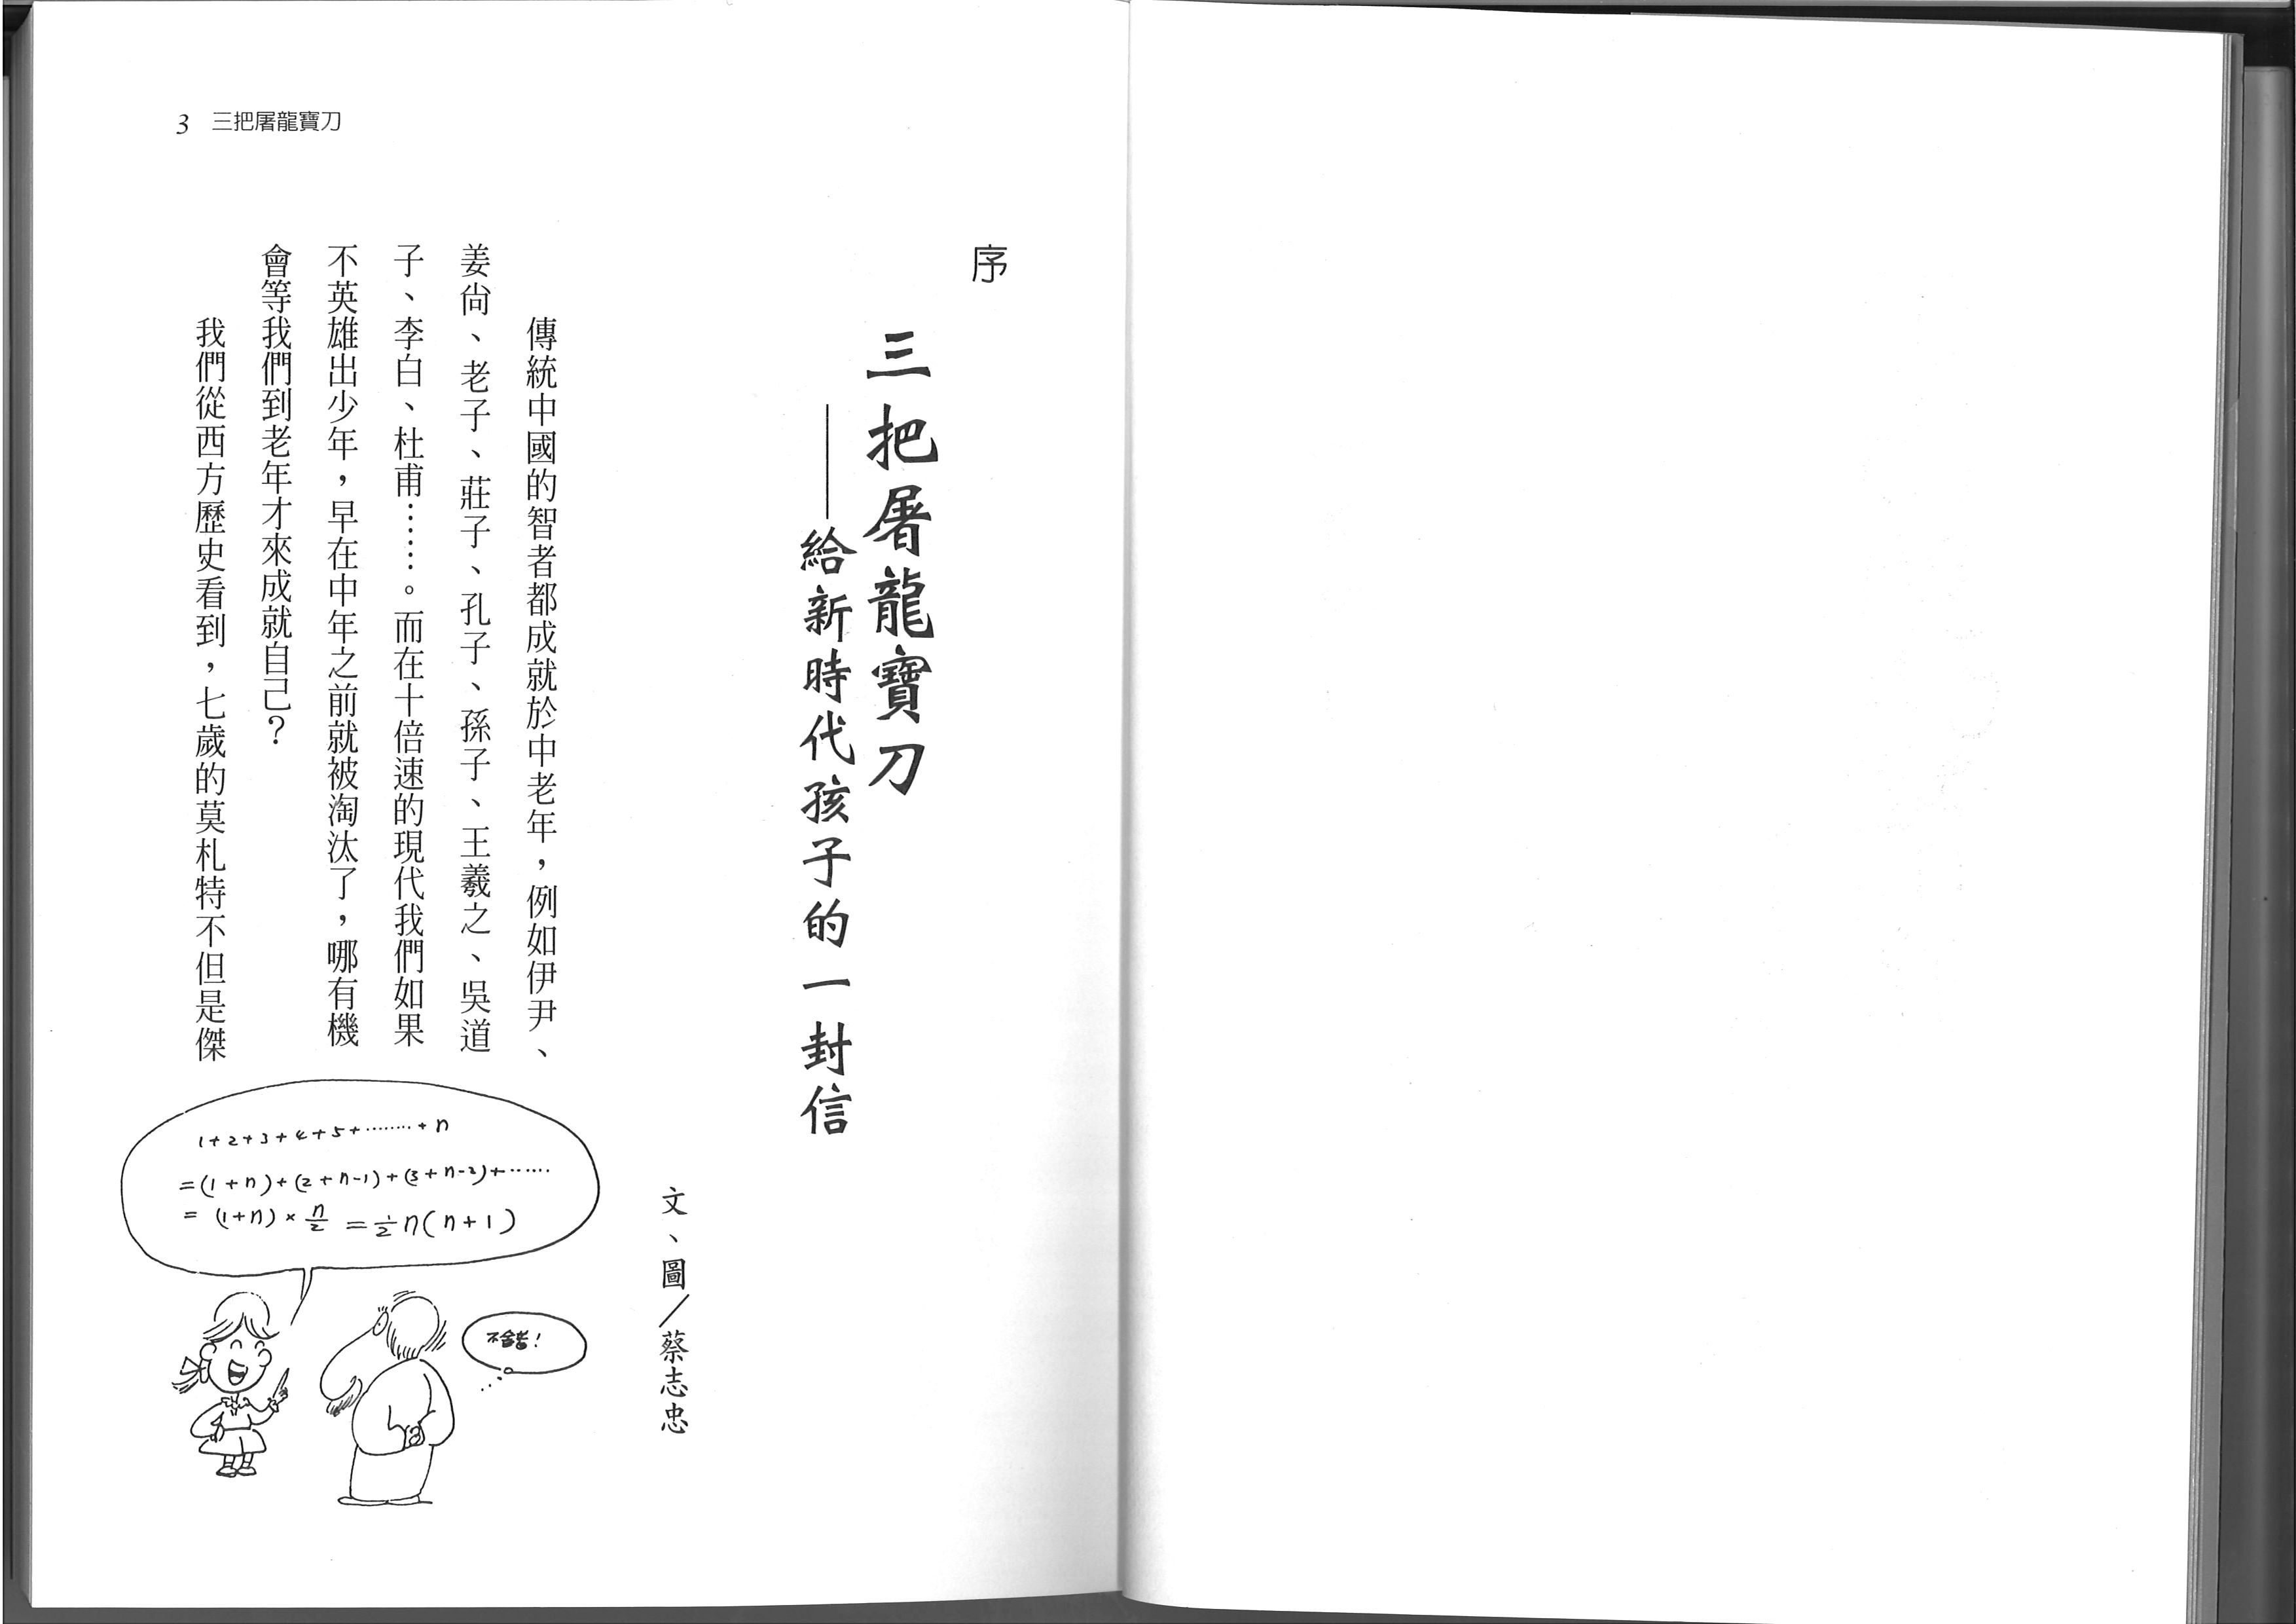 3 三把屠龍寶刀
序
三把屠龍寶刀
——給新時代孩子的一封信
文、圖／蔡志忠
傳統中國的智者都成就於中老年，例如伊尹、
姜尙、老子、莊子、孔子、孫子、王羲之、吳道
子、李白、杜甫……。而在十倍速的現代我們如果
不英雄出少年，早在中年之前就被淘汰了，哪有機
會等我們到老年才來成就自己？
我們從西方歷史看到，七歲的莫札特不但是傑
1+2+3+4+5+········+n
=(1+n)+(2+n-1)+(3+n-2)+······
= (1+n)×n/2 =1/2 n(n+1)
不會吧！